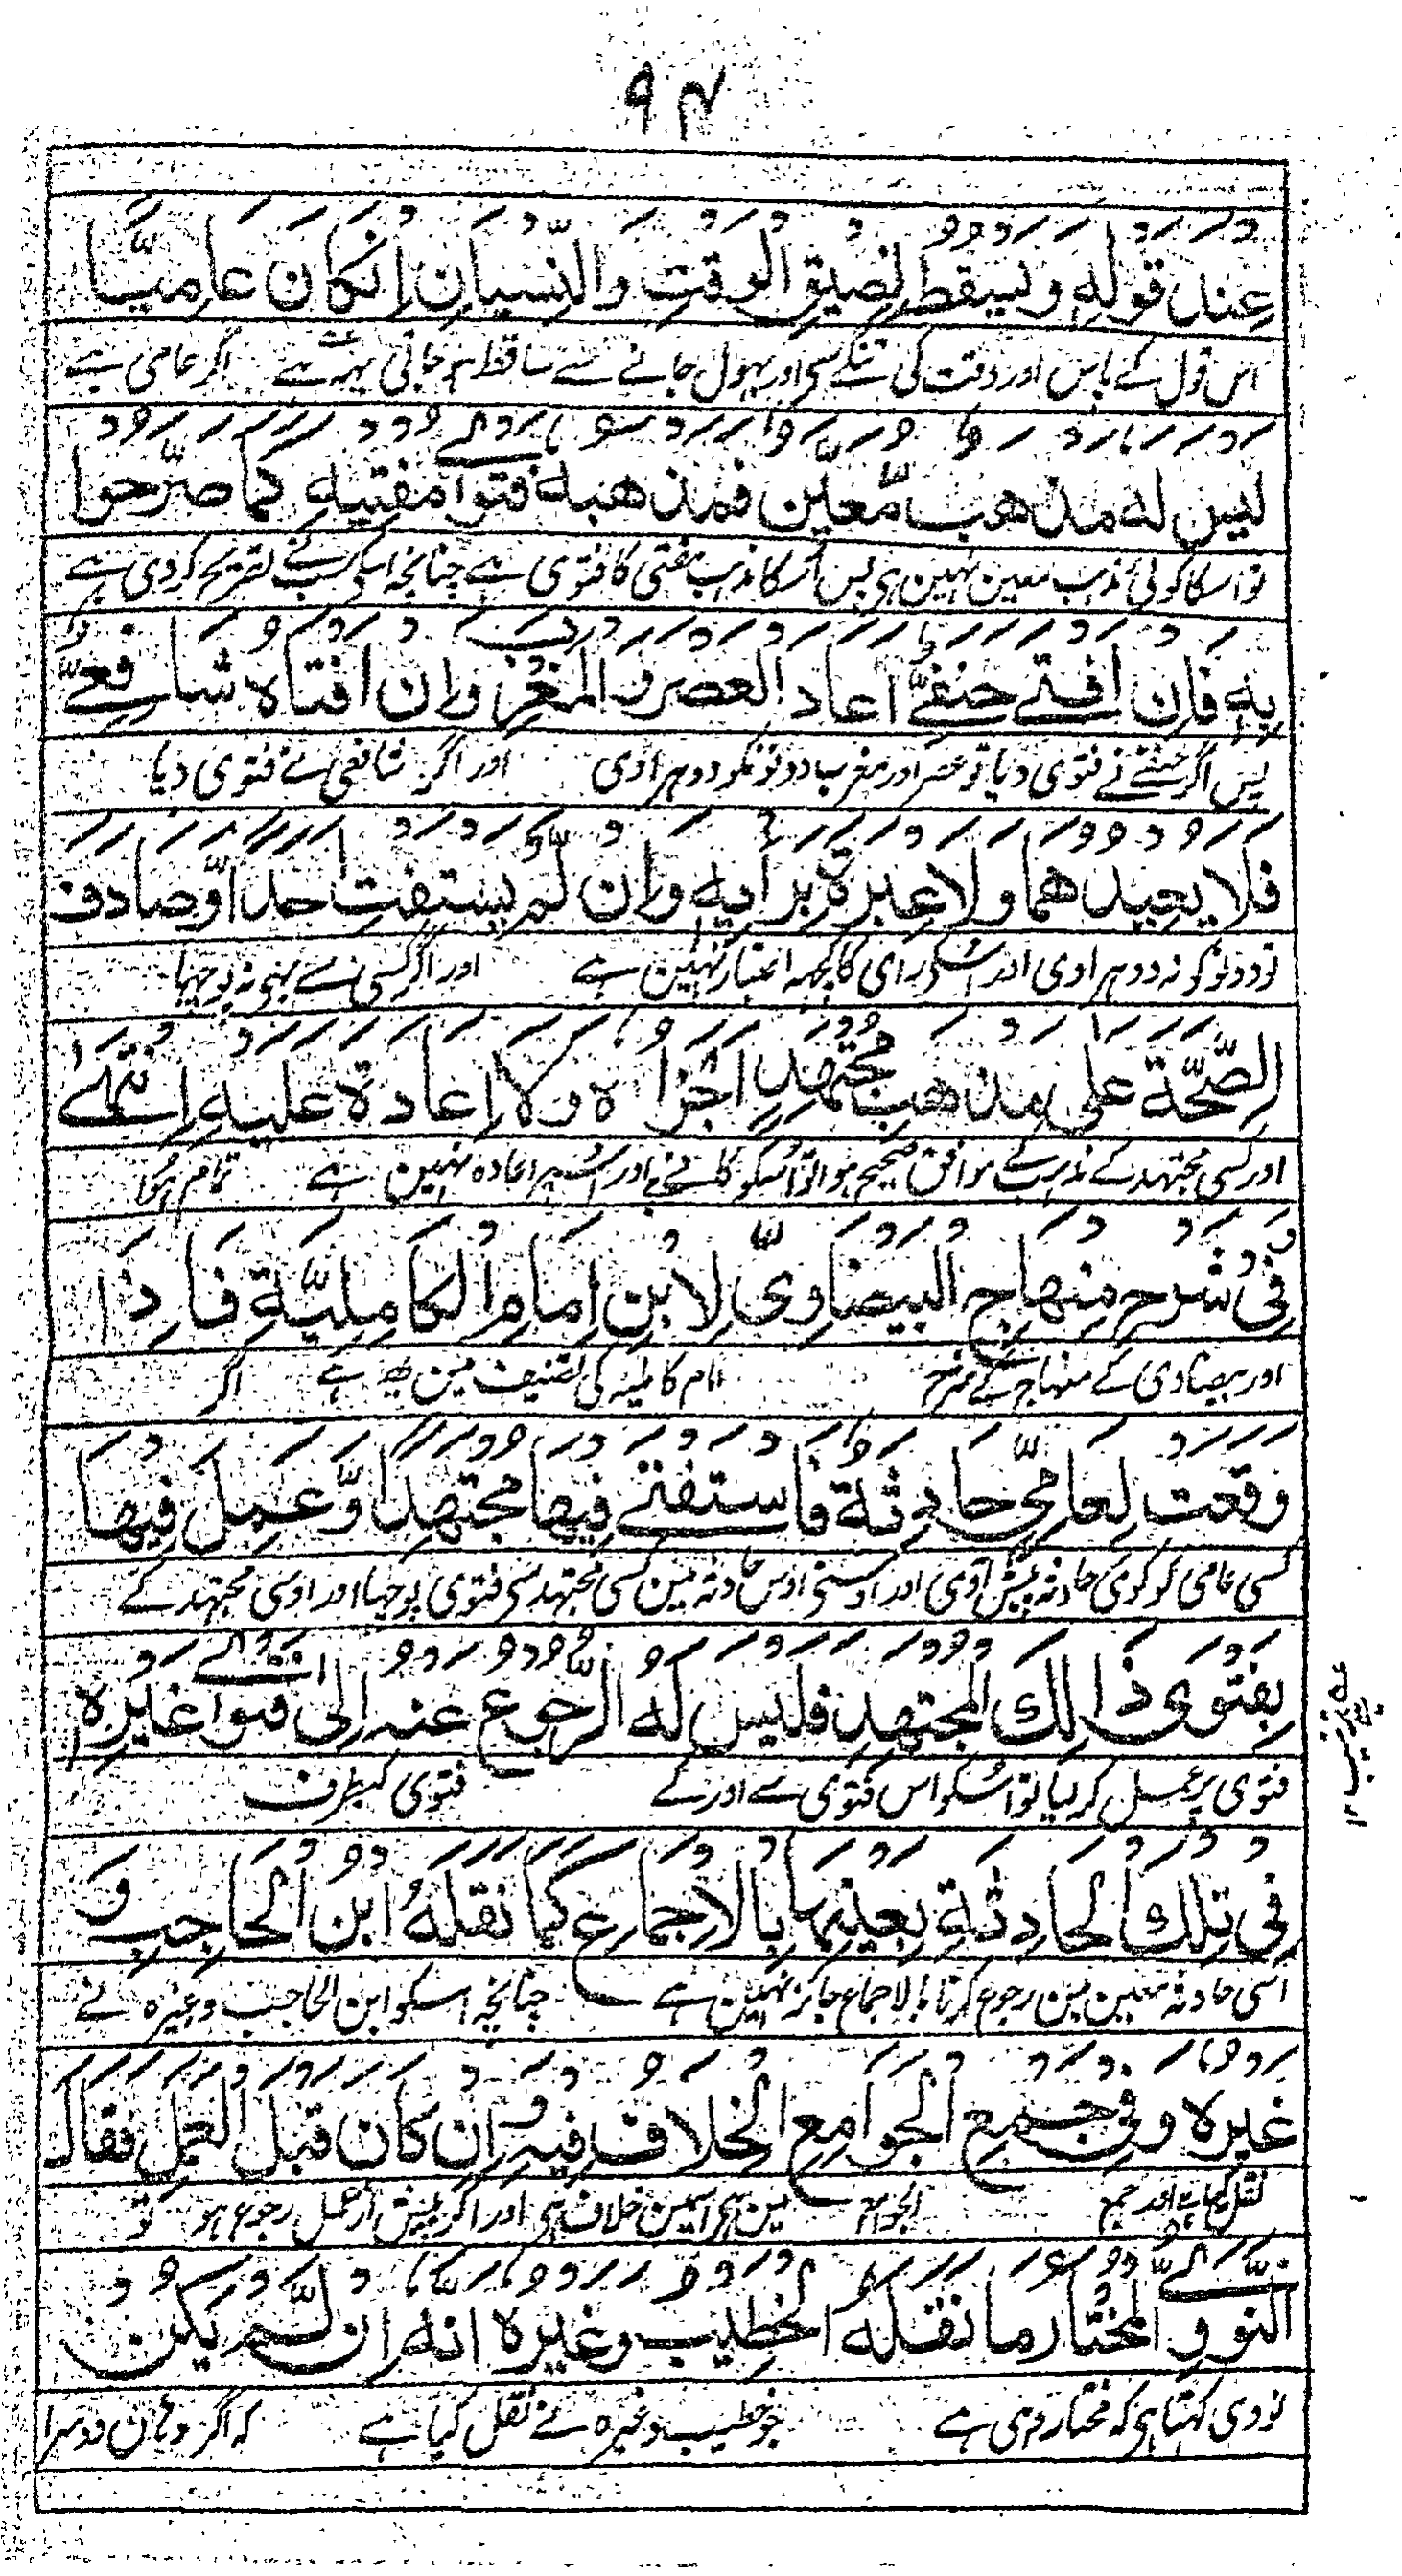 ٩٤
عِند قوله ويسقط لِضيق الوقتِ والنِّسيانِ اِنكان عامِيًّا
اس قول کے پاس اور وقت کی تنگی سی اور بہول جانے سے ساقط ہو جاتی ہے اگر عامی ہے
ليس له مذهب مّعيّن فمذهبه فتوا مفتيه كما صرّحوا
تو اسکا کوئی مذہب معین نہین ہی پس اسکا مذہب مفتی کا فتوی ہے چنانچہ اسکی سبنے تصریح کردی ہے
بِه فاِن افتے حنفيّ اعاد العصر و المغرب واِن افتاه شافِعيّ
پس اگر حنفے نے فتوی دیا تو عصر اور مغرب دونونکو دوہراوی اور اگر شافعی نے فتوی دیا
فلا يعيدهما ولا عِبرة برايه واِن لّم يستفتِ احدا اوّصادف
تو دونوکو نہ دوہراوی اور اسکی رای کا کچہہ اعتبار نہین ہے اور اگر کسی سے بہی نہ پوچہا
الصِّحّة على مذهب مجتهدٍ اجزاه ولا اِعادة عليه اِنتهى
اور کسی مجتہد کے مذہب کے موافق صحیح ہوا تو اسکو کافے ہی اور اسپر اعادہ نہین ہے تمام ہوا
وفي شرح مِنهاجِ البيضاوىّ لِابنِ اِمامِ الكامِليّة فاِذا
اور بیضاوی کے منہاج کے شرح امام کاملیہ کی تصنیف مین یہ ہے اگر
وقعت لِعامىّ حادِثة فاستفتے فيها مجتهدا وّعمِل فيها
کسی عامی کو کوی حادثہ پیش آوی اور اوسنی اوس حادثہ مین کسی مجتہد سی فتوی پوچہا اور اوسی مجتہد کے
بفتوى ذالك المجتهدِ فليس له الرّجوع عنه اِلى فتوا غيره
فتوی پر عمل کر لیا تو اسکو اس فتوی سے اور کے فتوی کیطرف
في تِلك الحادِثةِ بعينِها بالاِجماع كما نقله ابن الحاجِبِ و
اسی حادثہ معین مین رجوع کرنا بالاجماع جائز نہین ہے چنانچہ اسکو ابن الحاجب وغیرہ نے
غيره وفى جمع الجوامِع الخلاف فيه و اِن كان قبل العمل فقال
نقل کیا ہے اور جمع الجوامع مین ہی اسمین خلاف ہی اور اگر پیش از عمل رجوع ہو تو
النّووى المختار ما نقله الخطيب وغيره انه اِن لّم يكن
نووی کہتا ہی کہ مختار وہی ہے جو خطیب وغیرہ نے نقل کیا ہے کہ اگر وہان دوسرا